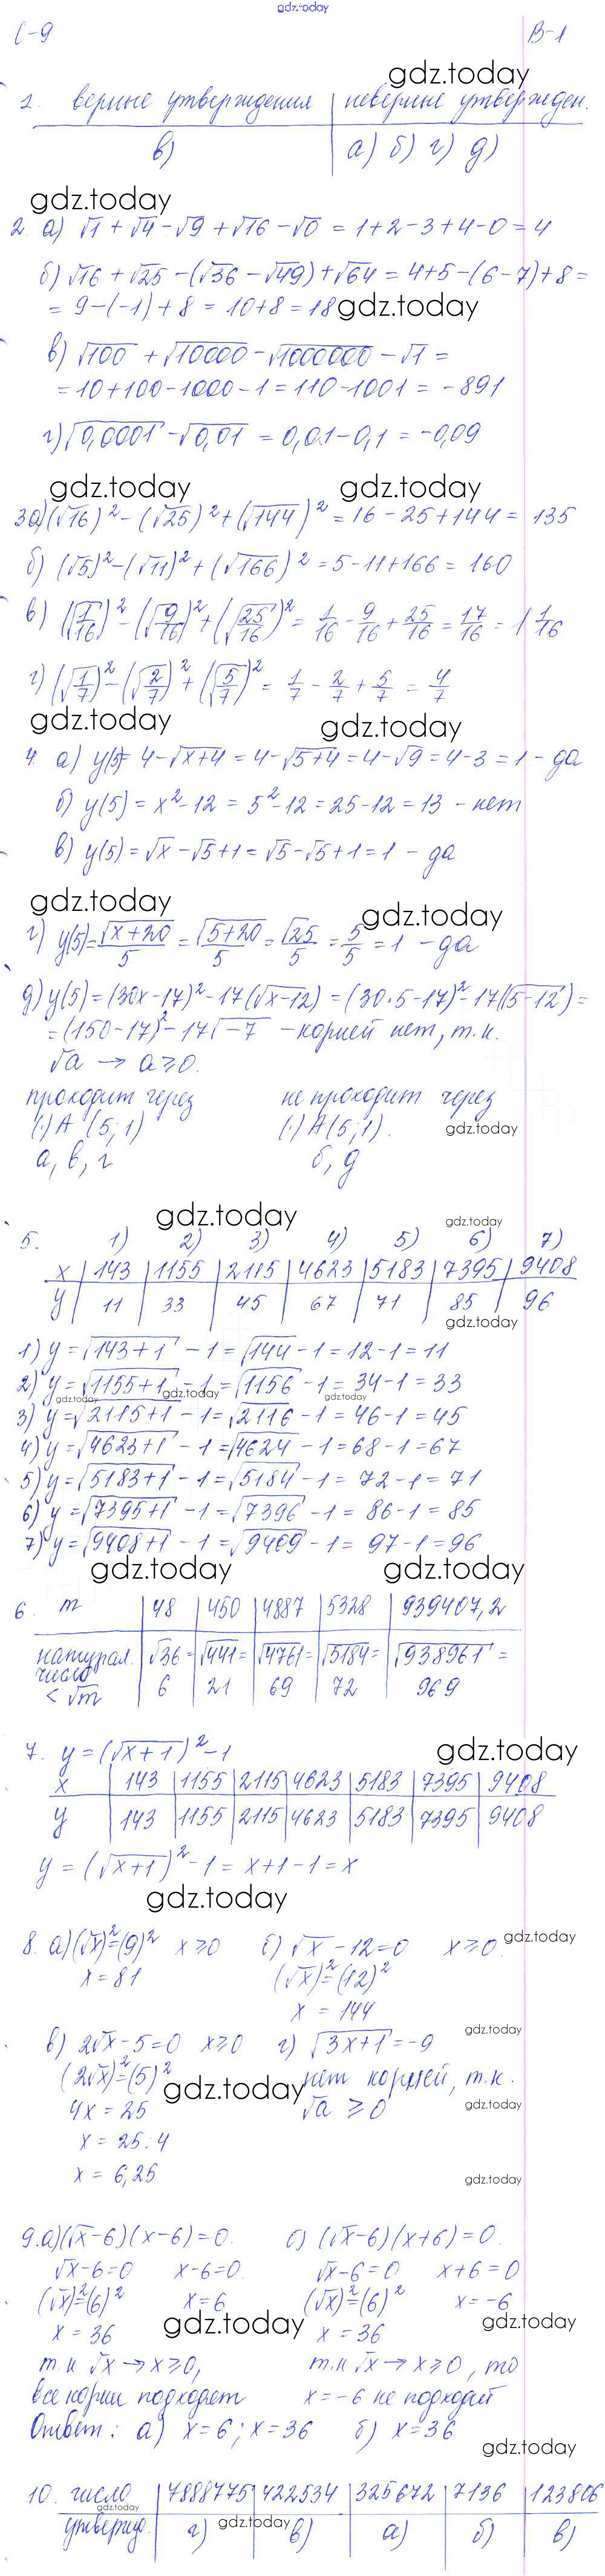 gdz.today
С-9 В-1
gdz.today
1. верные утверждения неверные утвержден.
в) а) б) г) д)
gdz.today
2. а) √1 + √4 - √9 + √16 - √0 = 1+2-3+4-0=4
б) √16 + √25 - (√36 - √49) + √64 = 4+5-(6-7)+8=
= 9-(-1)+8 = 10+8 = 18 gdz.today
в) √100 + √10000 - √1000000 - √1 =
= 10+100-1000-1=110-1001= -891
г) √0,0001 - √0,01 = 0,01-0,1 = -0,09
gdz.today gdz.today
3 а) (√16)² - (√25)² + (√144)² = 16-25+144 = 135
б) (√5)² - (√11)² + (√166)² = 5-11+166 = 160
в) (√1/16)² - (√9/16)² + (√25/16)² = 1/16 - 9/16 + 25/16 = 17/16 = 1 1/16
г) (√1/7)² - (√2/7)² + (√5/7)² = 1/7 - 2/7 + 5/7 = 4/7
gdz.today gdz.today
4. а) y(5)= 4-√x+4 = 4-√5+4 = 4-√9 = 4-3 = 1 - да
б) y(5) = x²-12 = 5²-12 = 25-12 = 13 - нет
в) y(5) = √x - √5+1 = √5-√5+1 = 1 - да
gdz.today gdz.today
г) y(5)= √x+20/5 = √5+20/5 = √25/5 = 5/5 = 1 - да
д) y(5) = (30x-17)² - 17(√x-12) = (30·5-17)² - 17(√5-12) =
= (150-17)² - 17√-7 - корней нет, т.к.
√a → a⩾0.
проходит через не проходит через
(·)A (5;1) (·)A(5;1).
gdz.today
а, в, г б, д
gdz.today gdz.today
5. 1) 2) 3) 4) 5) 6) 7)
x 143 1155 2115 4623 5183 7395 9408
y 11 33 45 67 71 85 96
gdz.today
1) y = √143+1 - 1 = √144 - 1 = 12-1 = 11
2) y = √1155+1 - 1 = √1156 - 1 = 34-1 = 33
gdz.today gdz.today gdz.today
3) y = √2115+1 - 1 = √2116 - 1 = 46-1 = 45
4) y = √4623+1 - 1 = √4624 - 1 = 68-1 = 67
5) y = √5183+1 - 1 = √5184 - 1 = 72-1 = 71
6) y = √7395+1 - 1 = √7396 - 1 = 86-1 = 85
7) y = √9408+1 - 1 = √9409 - 1 = 97-1 = 96
gdz.today gdz.today
6. m 48 450 4887 5328 939407,2
натурал. √36= √441= √4761= √5184= √938961=
число 6 21 69 72 969
< √m
7. y = (√x+1)² - 1 gdz.today
x 143 1155 2115 4623 5183 7395 9408
y 143 1155 2115 4623 5183 7395 9408
y = (√x+1)² - 1 = x+1-1 = x
gdz.today
8. а) (√x)²=(9)² x⩾0 б) √x - 12=0 x⩾0. gdz.today
x = 81 (√x)²=(12)²
x = 144
в) 2√x - 5=0 x⩾0 г) √3x+1 = -9 gdz.today
(2√x)²=(5)² gdz.today нет корней, т.к.
4x = 25 √a ⩾ 0 gdz.today
x = 25:4
x = 6,25 gdz.today
9. а) (√x-6)(x-6)=0. б) (√x-6)(x+6)=0
√x-6=0 x-6=0. √x-6=0 x+6=0
(√x)²=(6)² x=6 (√x)²=(6)² x=-6
x = 36 gdz.today x = 36 gdz.today
т.к √x → x⩾0, т.к √x → x⩾0, то
все корни подходят x=-6 не подходит
Ответ: а) x=6; x=36 б) x=36
gdz.today
10. число 7888775 422534 325672 7136 123806
gdz.today
утвержд. г) gdz.today в) а) б) в)